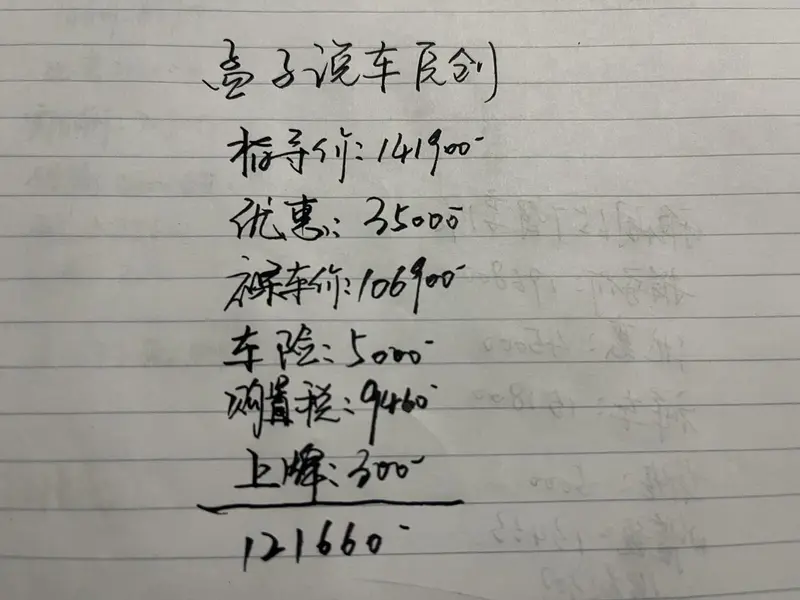 孟子说车原创
指导价:141900-
优惠:35000-
裸车价:106900-
车险:5000-
购置税:9460-
上牌:300-
121660-